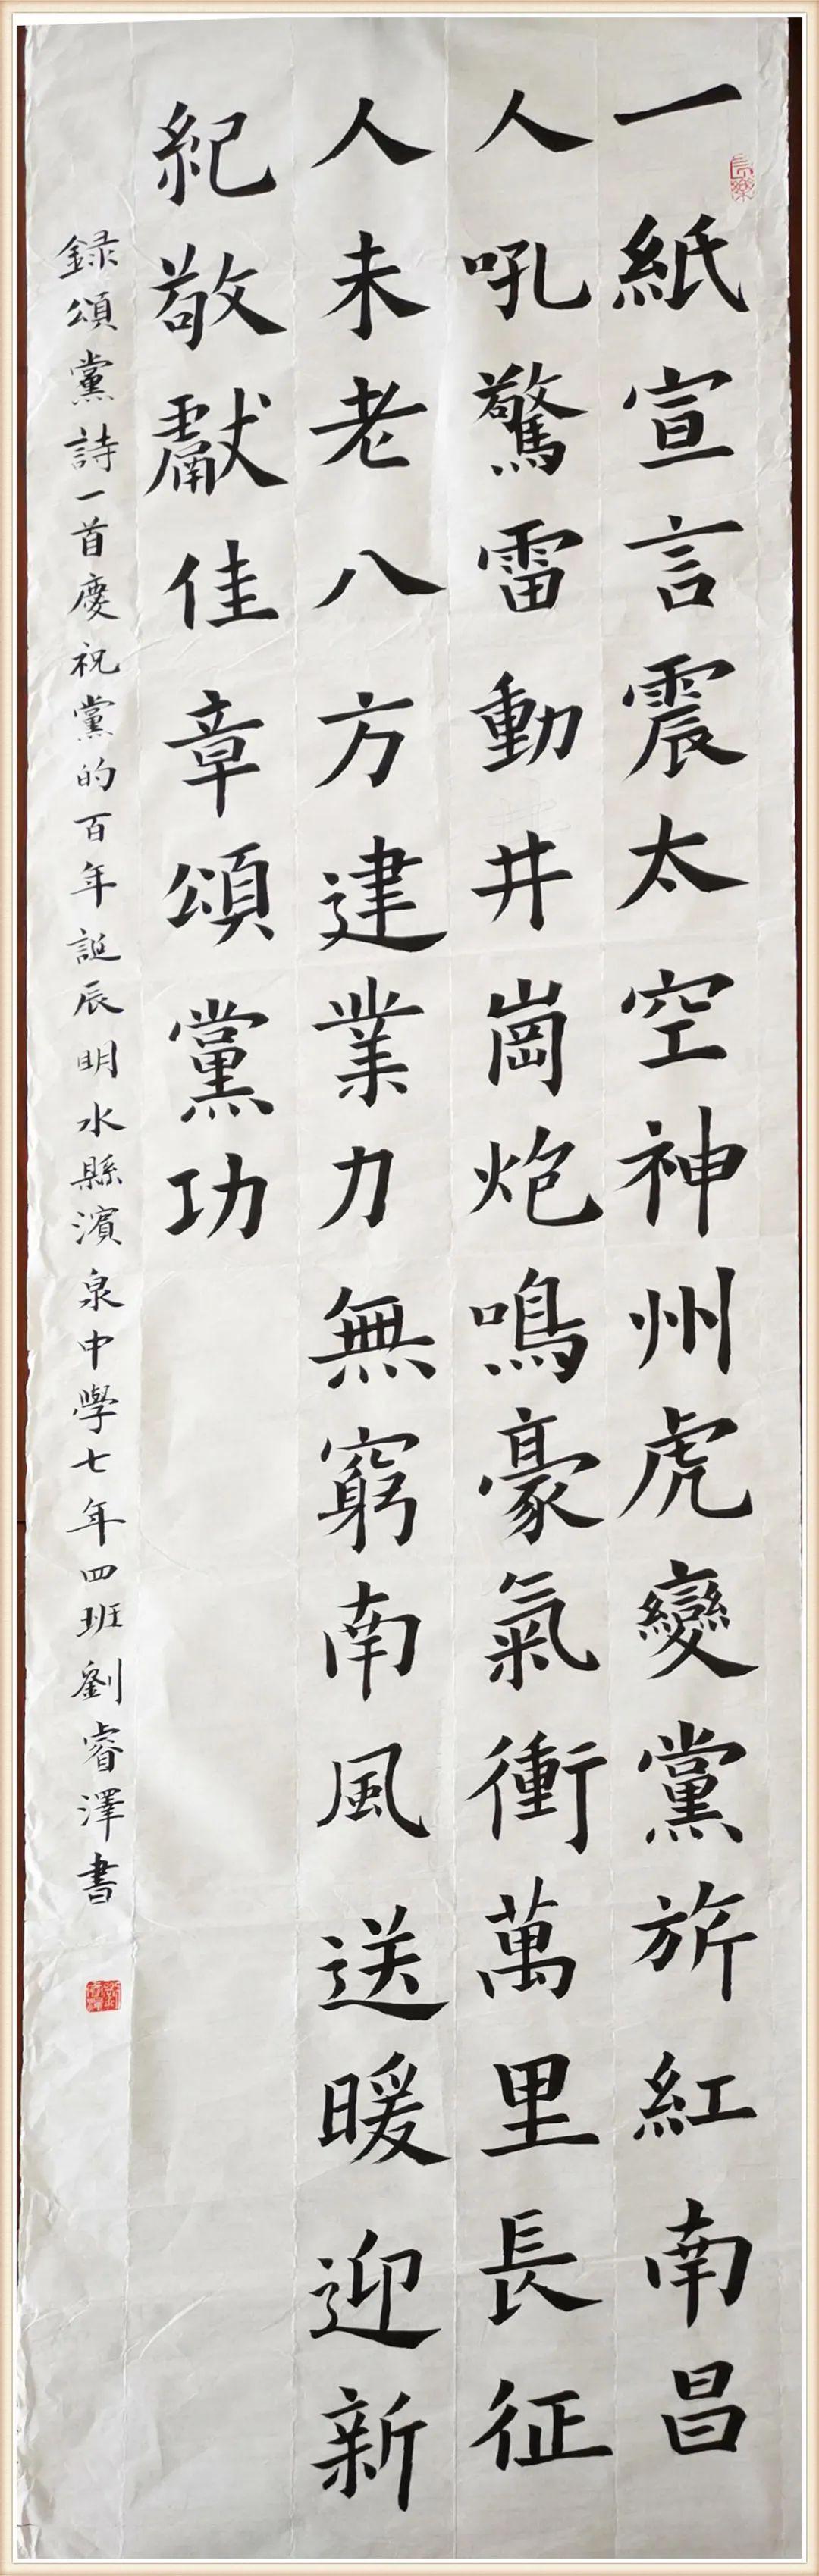 一紙宣言震太空神州虎變黨旂紅南昌
人吼驚雷動井崗炮鳴豪氣衝萬里長征
人未老八方建業力無窮南風送暖迎新
紀敬獻佳章頌黨功
録頌黨詩一首慶祝黨的百年誕辰明水縣濱泉中學七年四班劉睿澤書
長樂